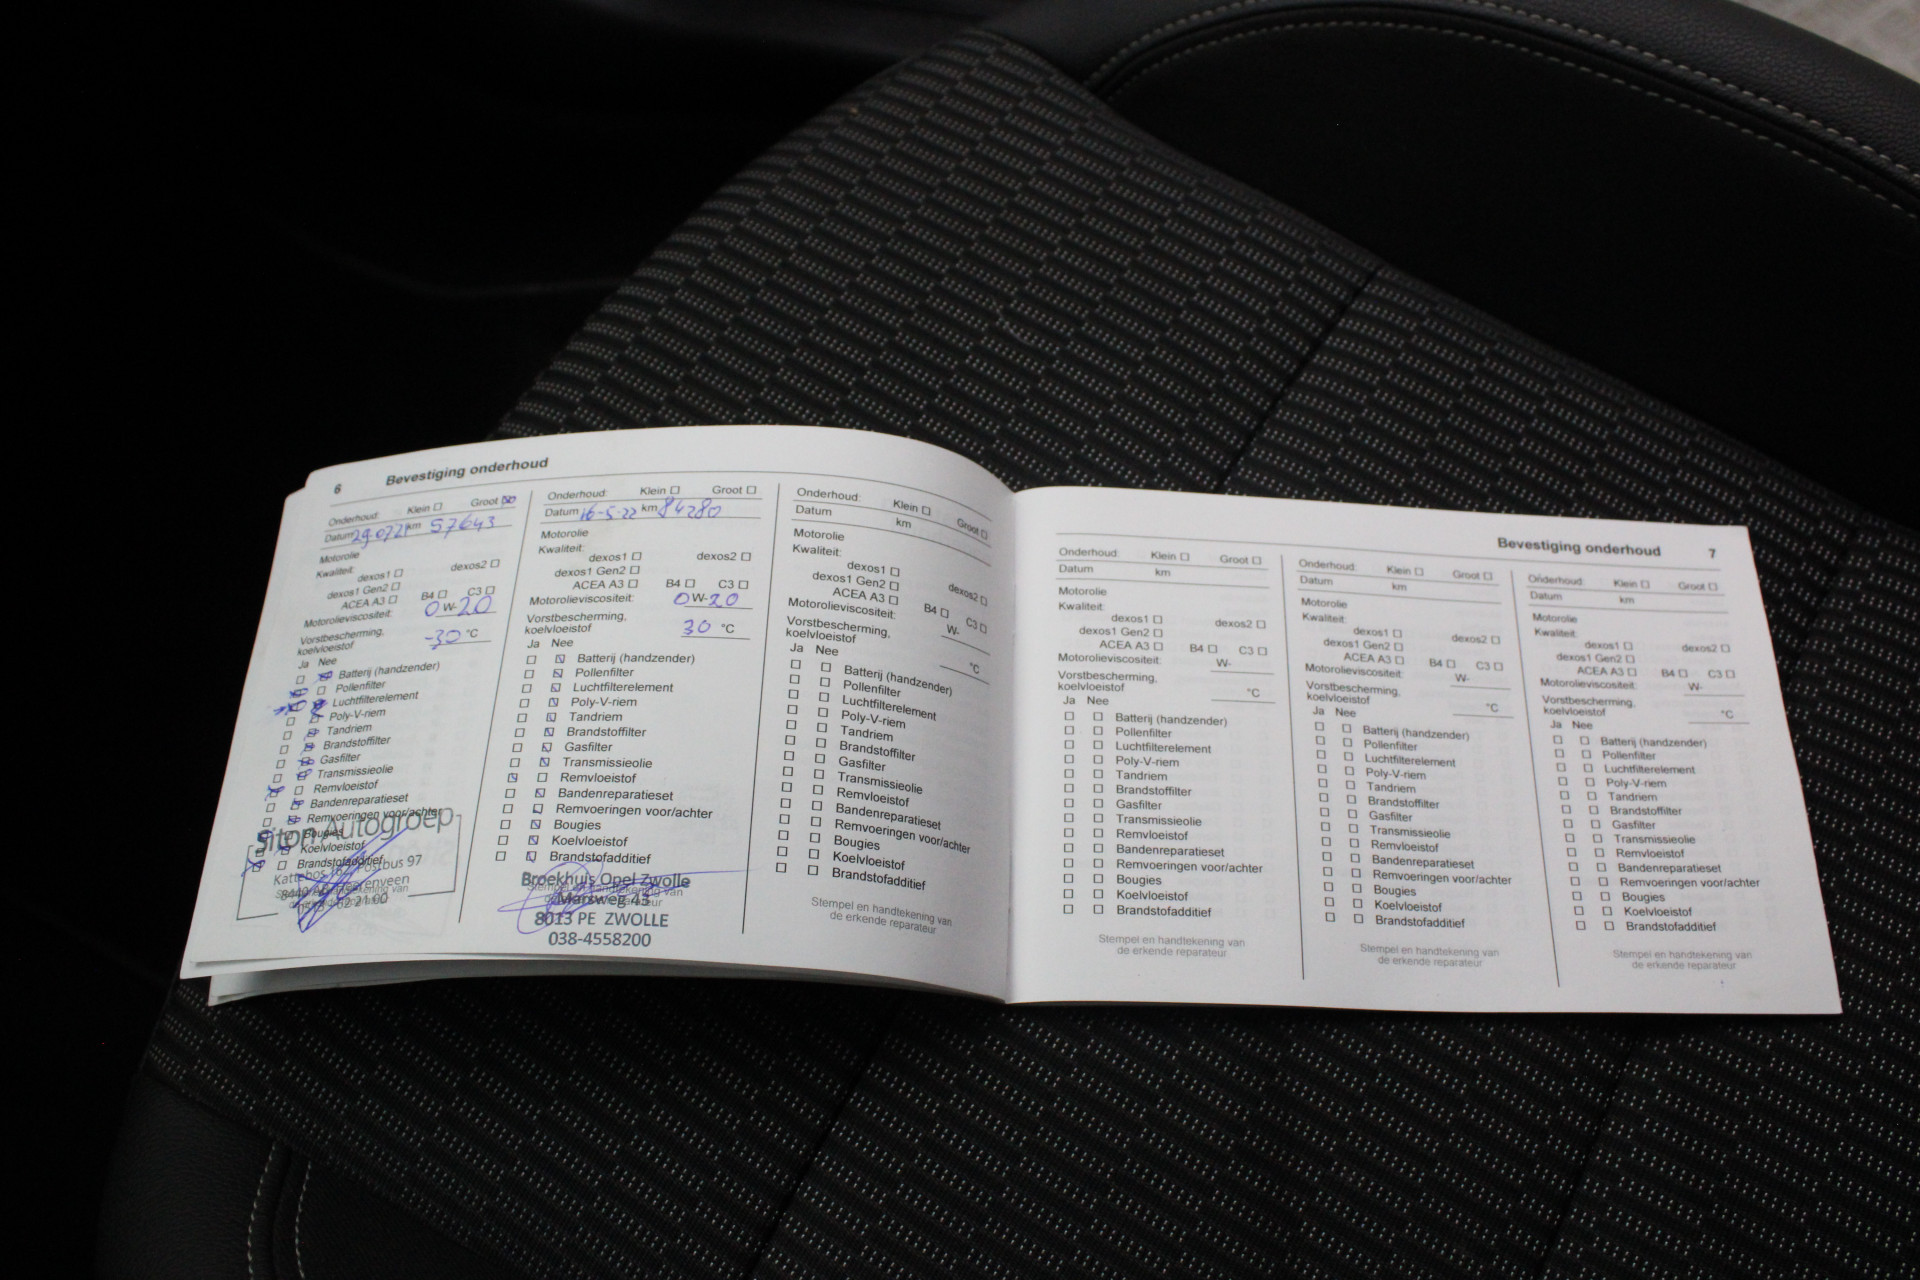 6 Bevestiging onderhoud
Onderhoud: Klein Groot
Datum 29-07-21 km 57643
Motorolie
Kwaliteit:
dexos1 dexos2
dexos1 Gen2
ACEA A3 B4 C3
Motorolieviscositeit: 0 W- 20
Vorstbescherming,
koelvloeistof -30 °C
Ja Nee
Batterij (handzender)
Pollenfilter
Luchtfilterelement
Poly-V-riem
Tandriem
Brandstoffilter
Gasfilter
Transmissieolie
Remvloeistof
Bandenreparatieset
Remvoeringen voor/achter
Bougies
Koelvloeistof
Brandstofadditief
Autogroep
Postbus 97
Heerenveen
Onderhoud: Klein Groot
Datum 16-5-22 km 84280
Motorolie
Kwaliteit:
dexos1 dexos2
dexos1 Gen2
ACEA A3 B4 C3
Motorolieviscositeit: 0 W- 20
Vorstbescherming,
koelvloeistof 30 °C
Ja Nee
Batterij (handzender)
Pollenfilter
Luchtfilterelement
Poly-V-riem
Tandriem
Brandstoffilter
Gasfilter
Transmissieolie
Remvloeistof
Bandenreparatieset
Remvoeringen voor/achter
Bougies
Koelvloeistof
Brandstofadditief
Broekhuis Opel Zwolle
Marsweg 43
8013 PE ZWOLLE
038-4558200
Onderhoud: Klein Groot
Datum km
Motorolie
Kwaliteit:
dexos1 dexos2
dexos1 Gen2
ACEA A3 B4 C3
Motorolieviscositeit: W-
Vorstbescherming,
koelvloeistof °C
Ja Nee
Batterij (handzender)
Pollenfilter
Luchtfilterelement
Poly-V-riem
Tandriem
Brandstoffilter
Gasfilter
Transmissieolie
Remvloeistof
Bandenreparatieset
Remvoeringen voor/achter
Bougies
Koelvloeistof
Brandstofadditief
Stempel en handtekening van
de erkende reparateur
Bevestiging onderhoud 7
Onderhoud: Klein Groot
Datum km
Motorolie
Kwaliteit:
dexos1 dexos2
dexos1 Gen2
ACEA A3 B4 C3
Motorolieviscositeit: W-
Vorstbescherming,
koelvloeistof °C
Ja Nee
Batterij (handzender)
Pollenfilter
Luchtfilterelement
Poly-V-riem
Tandriem
Brandstoffilter
Gasfilter
Transmissieolie
Remvloeistof
Bandenreparatieset
Remvoeringen voor/achter
Bougies
Koelvloeistof
Brandstofadditief
Stempel en handtekening van
de erkende reparateur
Onderhoud: Klein Groot
Datum km
Motorolie
Kwaliteit:
dexos1 dexos2
dexos1 Gen2
ACEA A3 B4 C3
Motorolieviscositeit: W-
Vorstbescherming,
koelvloeistof °C
Ja Nee
Batterij (handzender)
Pollenfilter
Luchtfilterelement
Poly-V-riem
Tandriem
Brandstoffilter
Gasfilter
Transmissieolie
Remvloeistof
Bandenreparatieset
Remvoeringen voor/achter
Bougies
Koelvloeistof
Brandstofadditief
Stempel en handtekening van
de erkende reparateur
Onderhoud: Klein Groot
Datum km
Motorolie
Kwaliteit:
dexos1 dexos2
dexos1 Gen2
ACEA A3 B4 C3
Motorolieviscositeit: W-
Vorstbescherming,
koelvloeistof °C
Ja Nee
Batterij (handzender)
Pollenfilter
Luchtfilterelement
Poly-V-riem
Tandriem
Brandstoffilter
Gasfilter
Transmissieolie
Remvloeistof
Bandenreparatieset
Remvoeringen voor/achter
Bougies
Koelvloeistof
Brandstofadditief
Stempel en handtekening van
de erkende reparateur